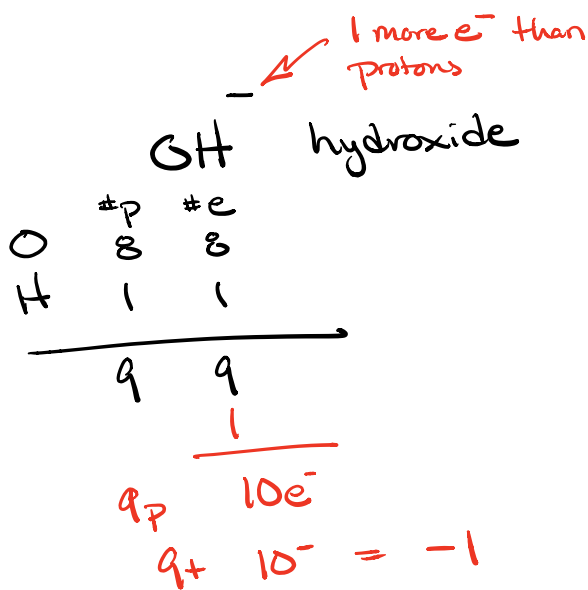 1 more e⁻ than
protons
OH⁻ hydroxide
#p #e
O 8 8
H 1 1
9 9
1
9p 10e⁻
9+ 10⁻ = -1